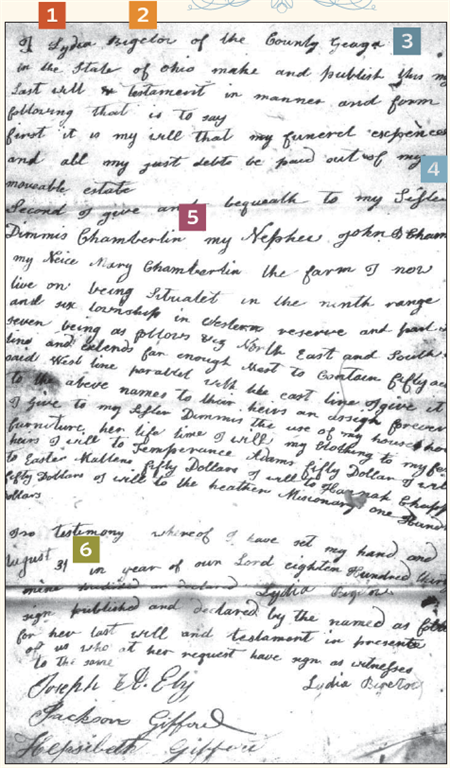 1 2
I Lydia Bigelow of the County Geauga 3
in the State of ohio make and publish this my
Last will & testament in manner and form
following that is to say
first it is my will that my funerel expences
and all my just debts be paid out of my
4
moveable estate
Second I give and bequeath to my Sister
5
Dimmis Chamberlin my Nephew John D Cham
my Neice Mary Chamberlin the farm I now
live on being Situatet in the ninth range
and six township in western reserve and part
seven being as follows viz North East and South
line and extends far enough West to Contain fifty ac
said West line parallel with the east line I give it
to the above names to their heirs an assign forever
I give to my Sister Dimmis the use of my house hol
furniture her life time I will my Clothing to my
heirs I will to Temperance Adams fifty Dollar I will
to Easter fifty Dollars I will to Hannah Chapp
fifty Dollars I will to the heathen Missionary one Hund
dollars
In testimony whereof I have set my hand and
6
August 31 in year of our Lord eighteen Hundred thir
Lydia
sign published and declared by the named as
for her last will and testament in presents
of us who at her request have sign as witnesses
to the same
Lydia
Joseph Ely
Jackson Gifford
Hepsibeth Gifford